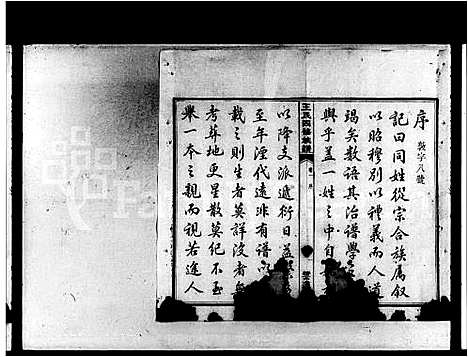 序
敦字八號
記曰同姓從宗合族屬叙
以昭穆別以禮義而人道
竭矣數語其治譜學
與乎蓋一姓之中自
王氏四修族譜
卷一 序
以降支派遞衍日益
至年湮代遠非有譜以
載之則生者莫詳没者
考葬地更星散莫紀不至
舉一本之親而視若途人